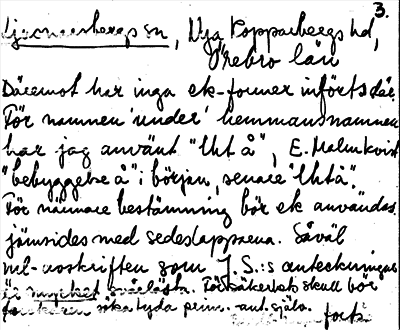 3.
Ljusnarsbergs sn, Nya Kopparbergs hd,
Örebro län
Däremot har inga ek-former införts där.
För namnen under hemmansnamnen
har jag använt "Uht å", E. Malmkvist
"bebyggelse å" i början, senare "Uhtå".
För närmare bestämning bör ek användas
jämsides med sedeslapparna. Såväl
ml-avskriften som J.S.:s anteckningar
är mycket svårlästa. För säkerhets skull bör
söka tyda prim. ant. själv.
forts.